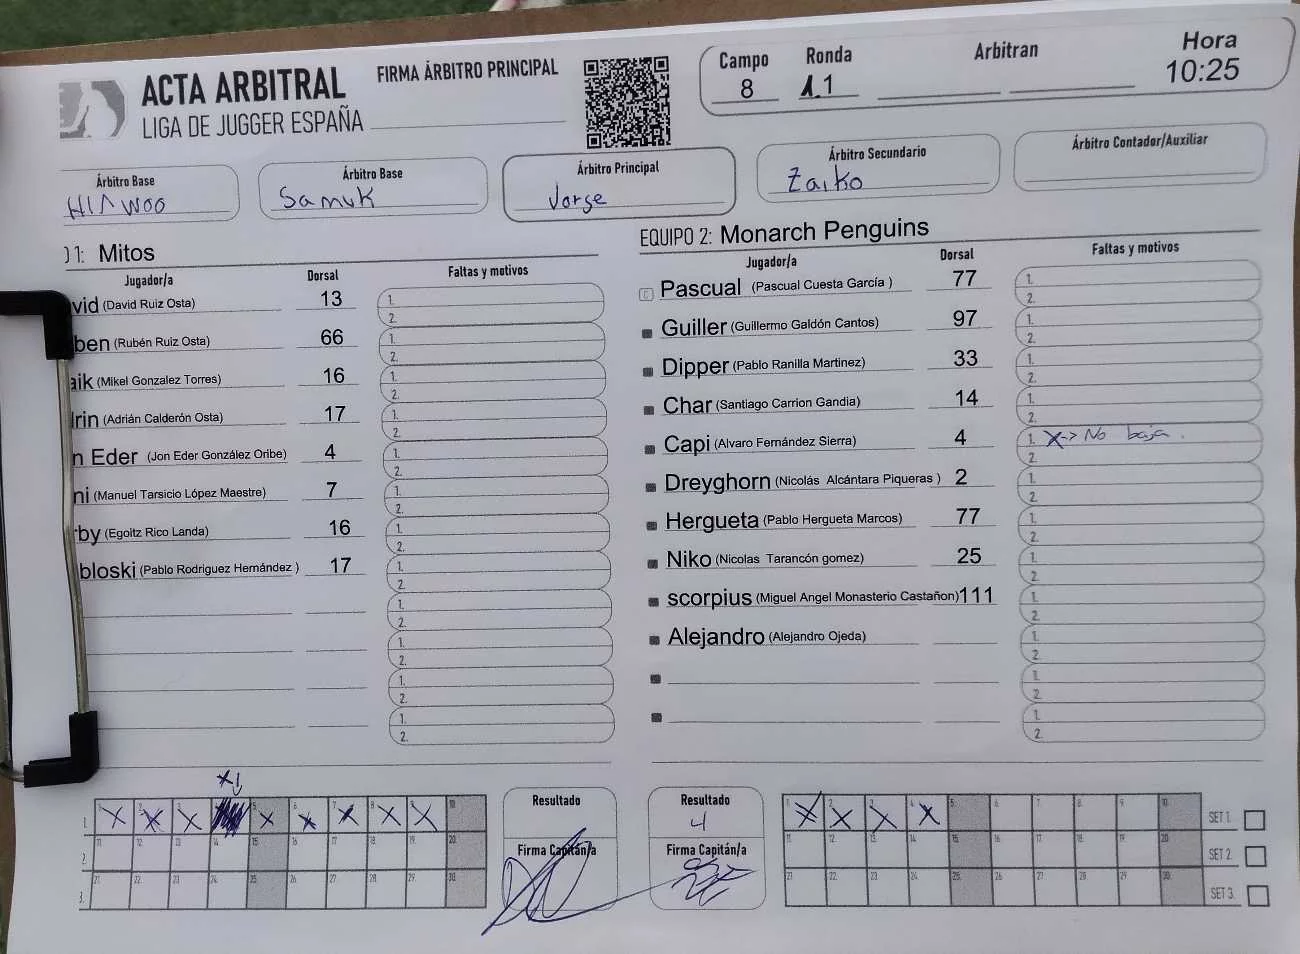 ACTA ARBITRAL
LIGA DE JUGGER ESPAÑA
FIRMA ÁRBITRO PRINCIPAL
Campo
8
Ronda
1.1
Arbitran
Hora
10:25
Árbitro Base
Árbitro Base
Samuk
Árbitro Principal
Jorge
Árbitro Secundario
Zaiko
Árbitro Contador/Auxiliar
O 1: Mitos
Jugador/a Dorsal Faltas y motivos
vid (David Ruiz Osta) 13 1. 2.
ben (Rubén Ruiz Osta) 66 1. 2.
aik (Mikel Gonzalez Torres) 16 1. 2.
drin (Adrián Calderón Osta) 17 1. 2.
n Eder (Jon Eder González Oribe) 4 1. 2.
ni (Manuel Tarsicio López Maestre) 7 1. 2.
rby (Egoitz Rico Landa) 16 1. 2.
bloski (Pablo Rodriguez Hernández ) 17 1. 2.
1. 2.
1. 2.
1. 2.
1. 2.
EQUIPO 2: Monarch Penguins
Jugador/a Dorsal Faltas y motivos
C Pascual (Pascual Cuesta García ) 77 1. 2.
Guiller (Guillermo Galdón Cantos) 97 1. 2.
Dipper (Pablo Ranilla Martinez) 33 1. 2.
Char (Santiago Carrion Gandia) 14 1. 2.
Capi (Alvaro Fernández Sierra) 4 1. X-> No baja. 2.
Dreyghorn (Nicolás Alcántara Piqueras ) 2 1. 2.
Hergueta (Pablo Hergueta Marcos) 77 1. 2.
Niko (Nicolas Tarancón gomez) 25 1. 2.
scorpius (Miguel Angel Monasterio Castañon) 111 1. 2.
Alejandro (Alejandro Ojeda) 1. 2.
1. 2.
1. 2.
X↓
1. 1 X 2 X 3 X 5 X 6 X 7 X 8 X 9 X 10
2. 11 12 13 14 15 16 17 18 19 20
3. 21 22 23 24 25 26 27 28 29 30
Resultado
Firma Capitán/a
Resultado
4
Firma Capitán/a
1 X 2 X 3 X 4 X 5 6 7 8 9 10 SET 1.
11 12 13 14 15 16 17 18 19 20 SET 2.
21 22 23 24 25 26 27 28 29 30 SET 3.